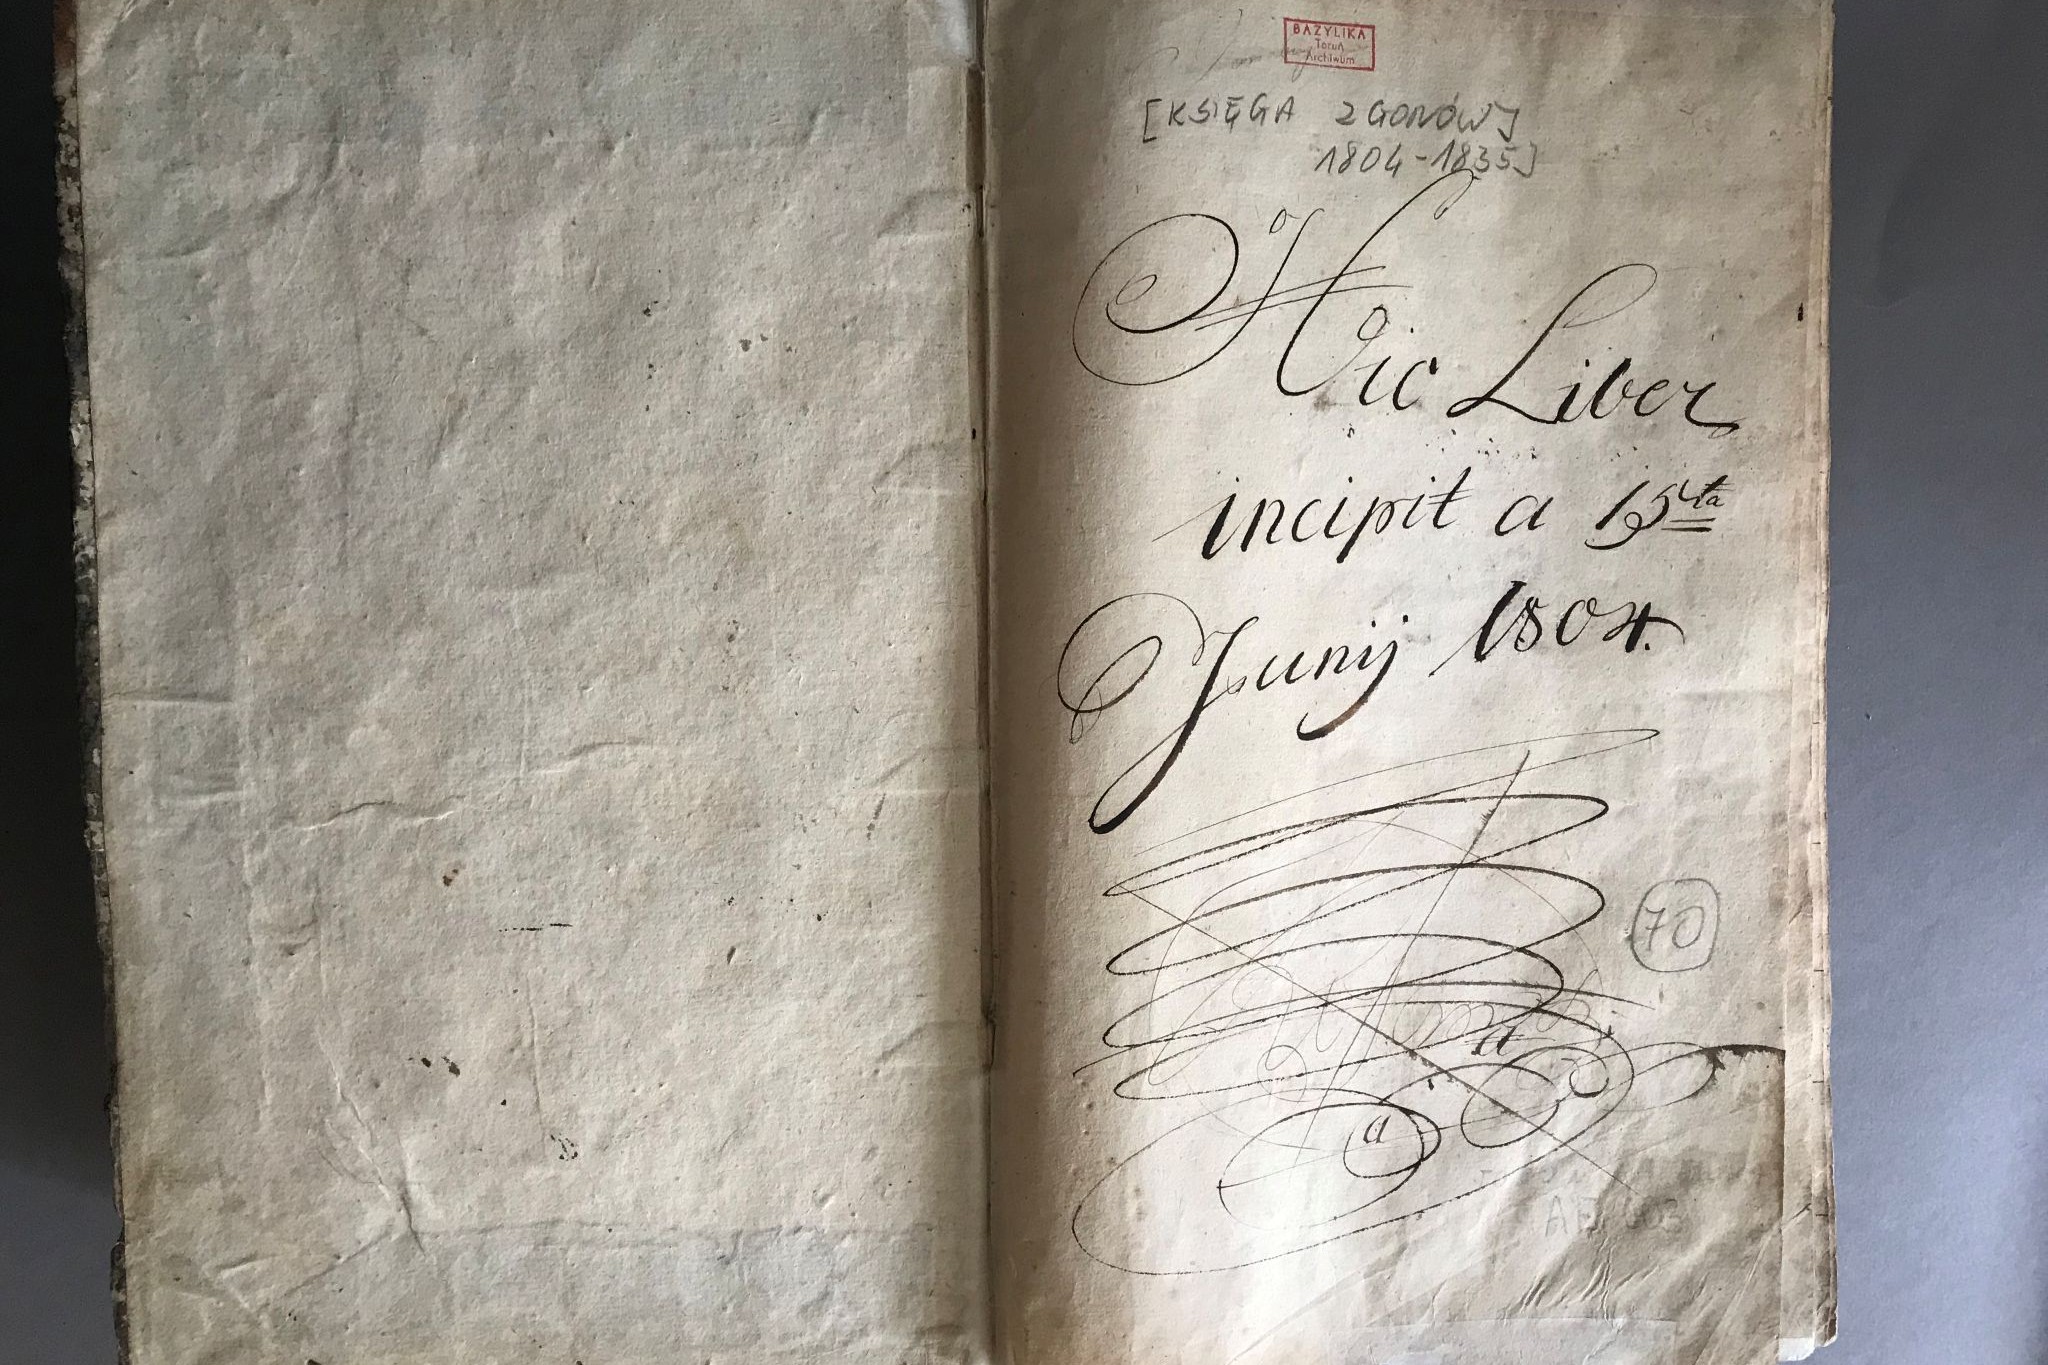 BAZYLIKA
Toruń
Archiwum
[KSIĘGA ZGONÓW]
1804-1835]
Hic Liber
incipit a 15ta
Junij 1804.
70
a